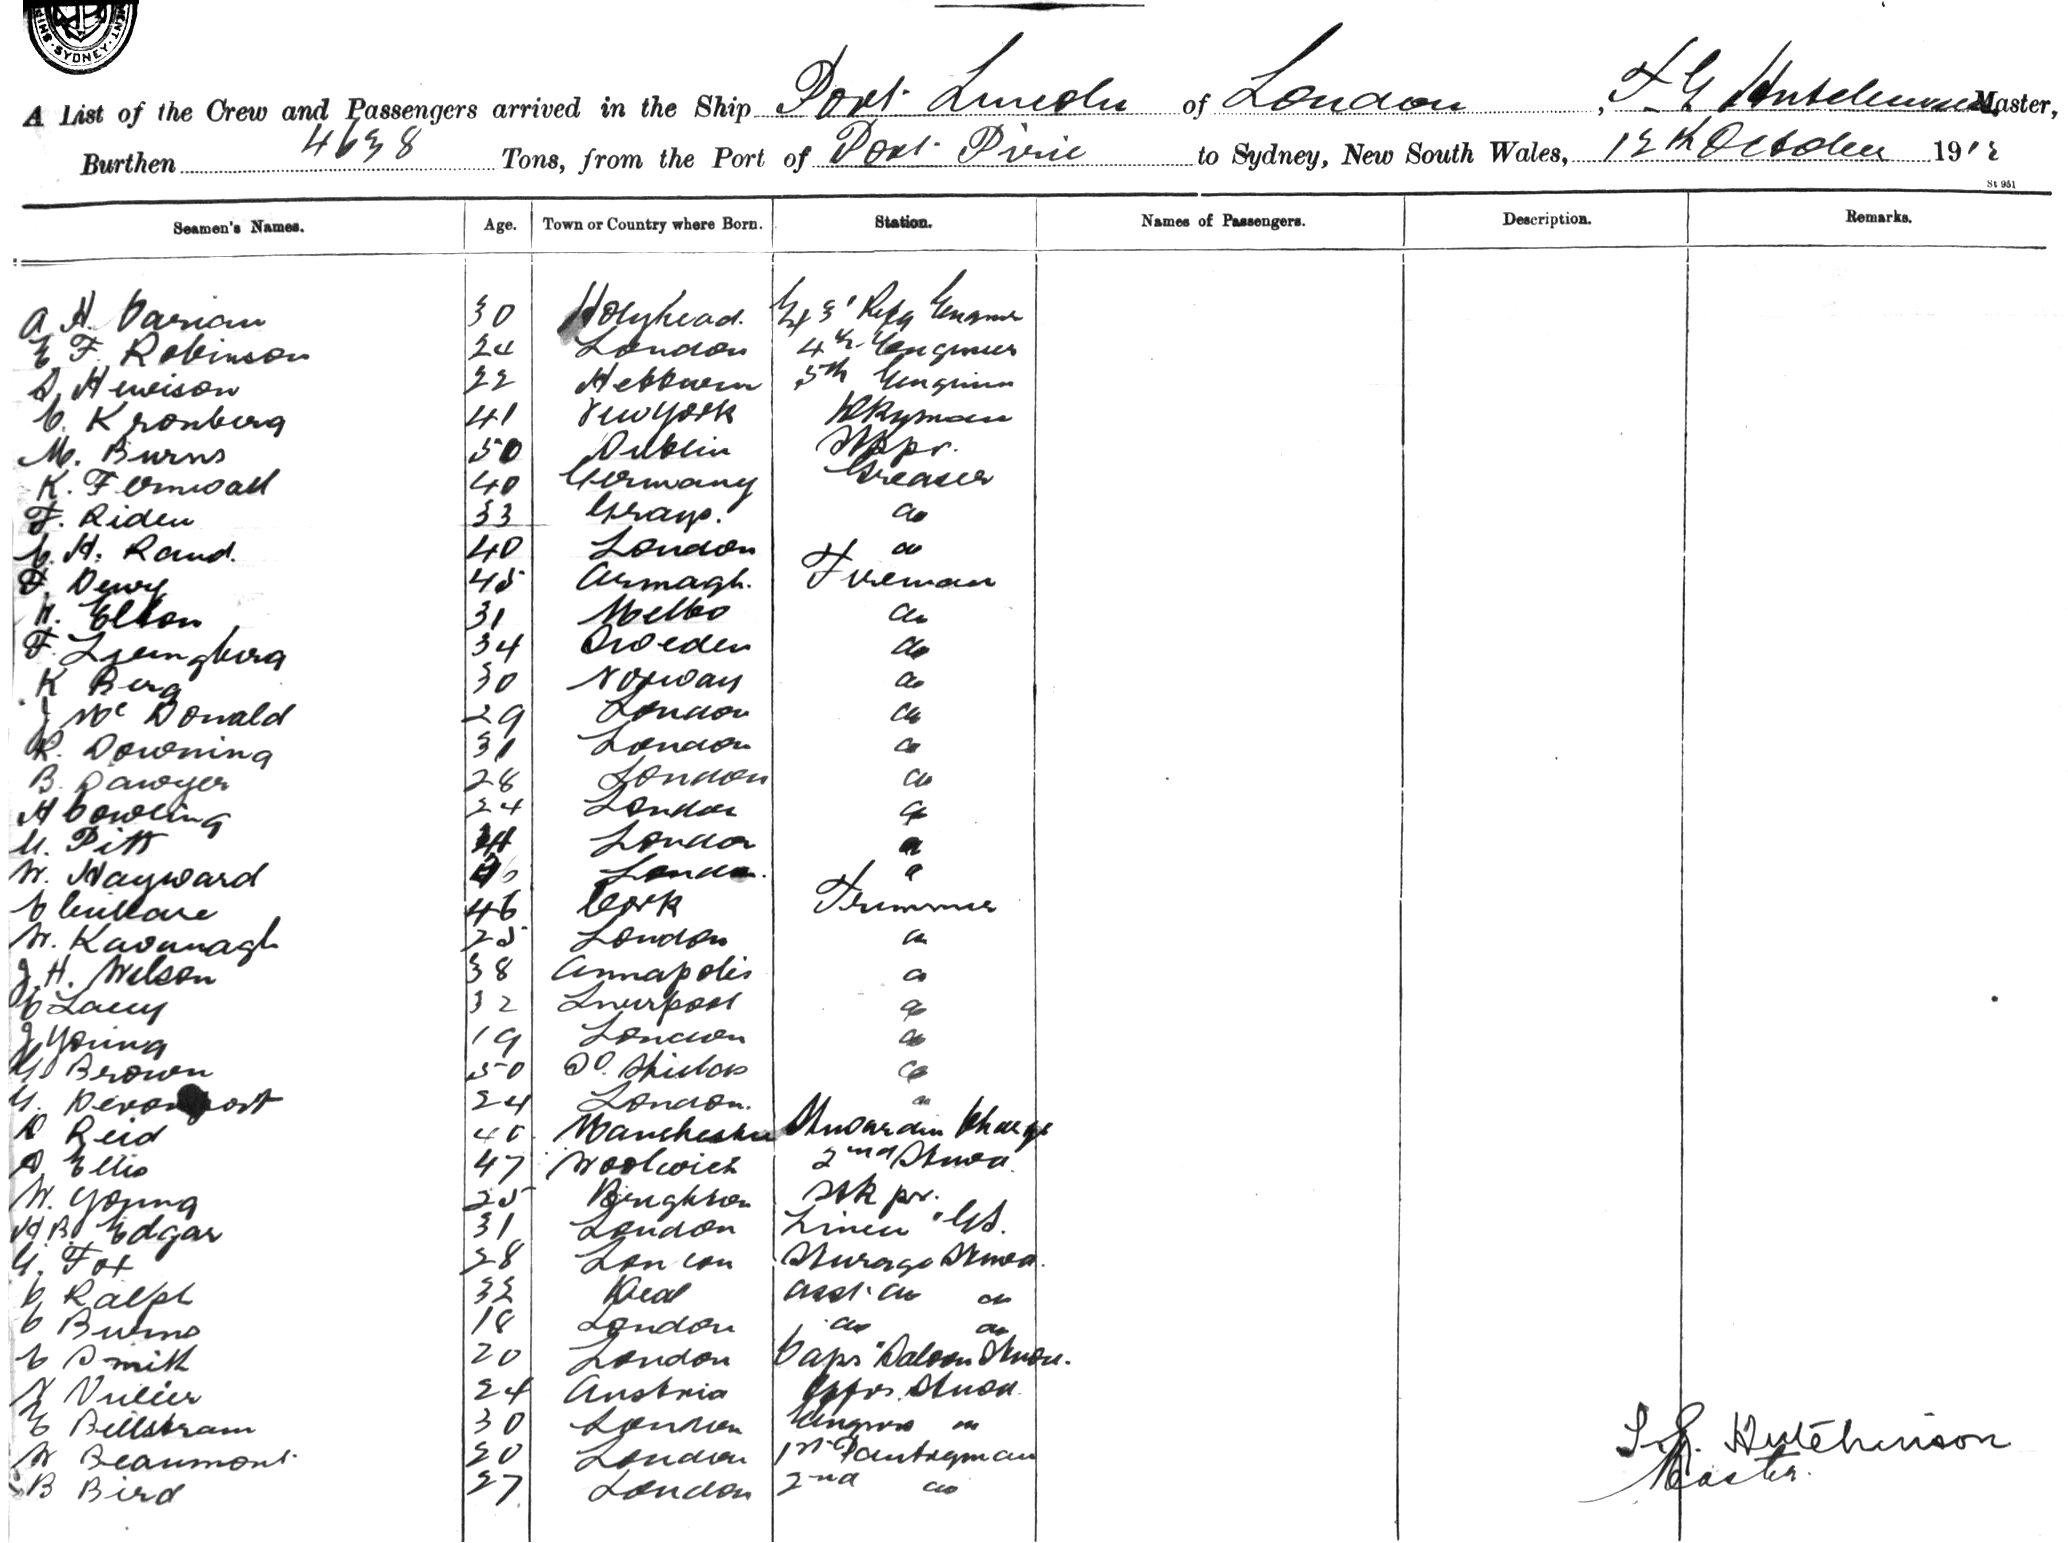 SYDNEY
A List of the Crew and Passengers arrived in the Ship Port Lincoln of London, F G Hutchinson Master,
Burthen 4638 Tons, from the Port of Port Pirie to Sydney, New South Wales, 12th October 1912
St 951
Seamen's Names. Age. Town or Country where Born. Station. Names of Passengers. Description. Remarks.
A H. Varian 30 Holyhead. & 3rd Refg Engineer
E F. Robinson 24 London 4th Engineer
D. Hewison 22 Hebburn 5th Engineer
C. Kronberg 41 New York Dkyman
M. Burns 50 Dublin Stkpr.
K. Fernwall 40 Germany Greaser
F. Riden 33 Grays. do
C. H. Rand. 40 London do
F. Dewy 45 Armagh. Fireman
H. Elton 31 Melbo do
F. Ljungberg 34 Sweden do
K Berg 30 Norway do
J McDonald 29 London do
R. Downing 31 London do
B. Sawyer 28 London do
H Cowling 24 London do
G. Pitt London do
W. Hayward London. do
C 46 Cork Trimmer
W. Kavanagh 25 London do
J. H. Wilson 38 Annapolis do
C Lacey 32 Liverpool do
J Young 19 London do
G Brown 50 So. Shields do
G. Devonport 24 London. do
D Reid 40 Manchester Steward in Charge
A Ellis 47 Woolwich 2nd Stewd.
W. Young 25 Brighton Stkpr.
H. B. Edgar 31 London Linen "
G. Fox 28 London Steerage Stewd.
C Ralph 32 Deal asst. do do
C Burns 18 London do do
C Smith 20 London Capts "Saloon Stewd.
Vulier 24 Austria Offrs. Stewd.
E Billstram 30 London Engnrs do
W Beaumont. 20 London 1st Pantryman
B Bird 27 London 2nd do
F. G. Hutchinson
Master.